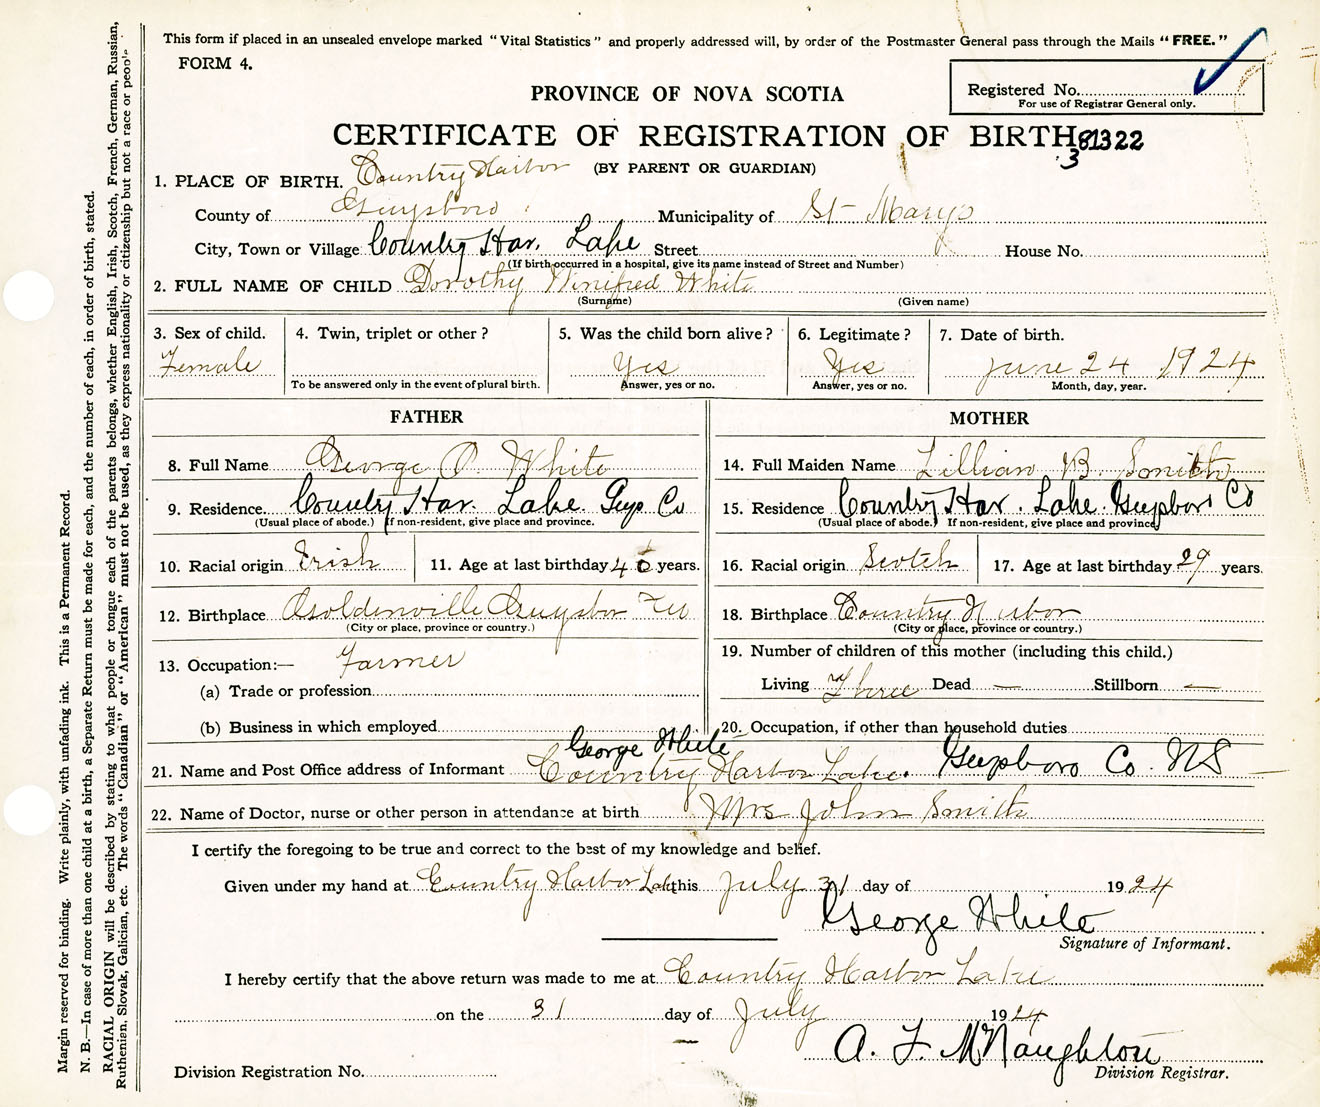 This form if placed in an unsealed envelope marked "Vital Statistics" and properly addressed will, by order of the Postmaster General pass through the Mails "FREE."
FORM 4.
Registered No.
For use of Registrar General only.
PROVINCE OF NOVA SCOTIA
CERTIFICATE OF REGISTRATION OF BIRTH 81322
3
(BY PARENT OR GUARDIAN)
1. PLACE OF BIRTH. Country Harbor
County of Guysboro Municipality of St Marys
City, Town or Village Country Har. Lake Street House No.
(If birth occurred in a hospital, give its name instead of Street and Number)
2. FULL NAME OF CHILD Dorothy Winifred White
(Surname) (Given name)
3. Sex of child. 4. Twin, triplet or other? 5. Was the child born alive? 6. Legitimate? 7. Date of birth.
Female Yes Yes June 24 1924
To be answered only in the event of plural birth. Answer, yes or no. Answer, yes or no. Month, day, year.
FATHER
8. Full Name George O. White
9. Residence Country Har. Lake. Guys Co
(Usual place of abode.) If non-resident, give place and province.
10. Racial origin Irish 11. Age at last birthday years.
12. Birthplace Goldenville Guysbor
(City or place, province or country.)
13. Occupation:— Farmer
(a) Trade or profession
(b) Business in which employed
MOTHER
14. Full Maiden Name Lillian B. Smith
15. Residence Country Har. Lake. Guysboro Co
(Usual place of abode.) If non-resident, give place and province
16. Racial origin Scotch 17. Age at last birthday 29 years.
18. Birthplace Country Harbor
(City or place, province or country.)
19. Number of children of this mother (including this child.)
Living Three Dead — Stillborn —
20. Occupation, if other than household duties
George White
21. Name and Post Office address of Informant Country Harbor Lake. Guysboro Co. NS
22. Name of Doctor, nurse or other person in attendance at birth Mrs John Smith
I certify the foregoing to be true and correct to the best of my knowledge and belief.
Given under my hand at Country Harbor Lake this July 31 day of 1924
George White
Signature of Informant.
I hereby certify that the above return was made to me at Country Harbor Lake
on the 31 day of July 1924
A. F. McNaughton
Division Registrar.
Division Registration No.
Margin reserved for binding. Write plainly, with unfading ink. This is a Permanent Record.
N. B.—In case of more than one child at a birth, a Separate Return must be made for each, and the number of each, in order of birth, stated.
RACIAL ORIGIN will be described by stating to what people or tongue each of the parents belongs, whether English, Irish, Scotch, French, German, Russian,
Ruthenian, Slovak, Galician, etc. The words "Canadian" or "American" must not be used, as they express nationality or citizenship but not a race or people